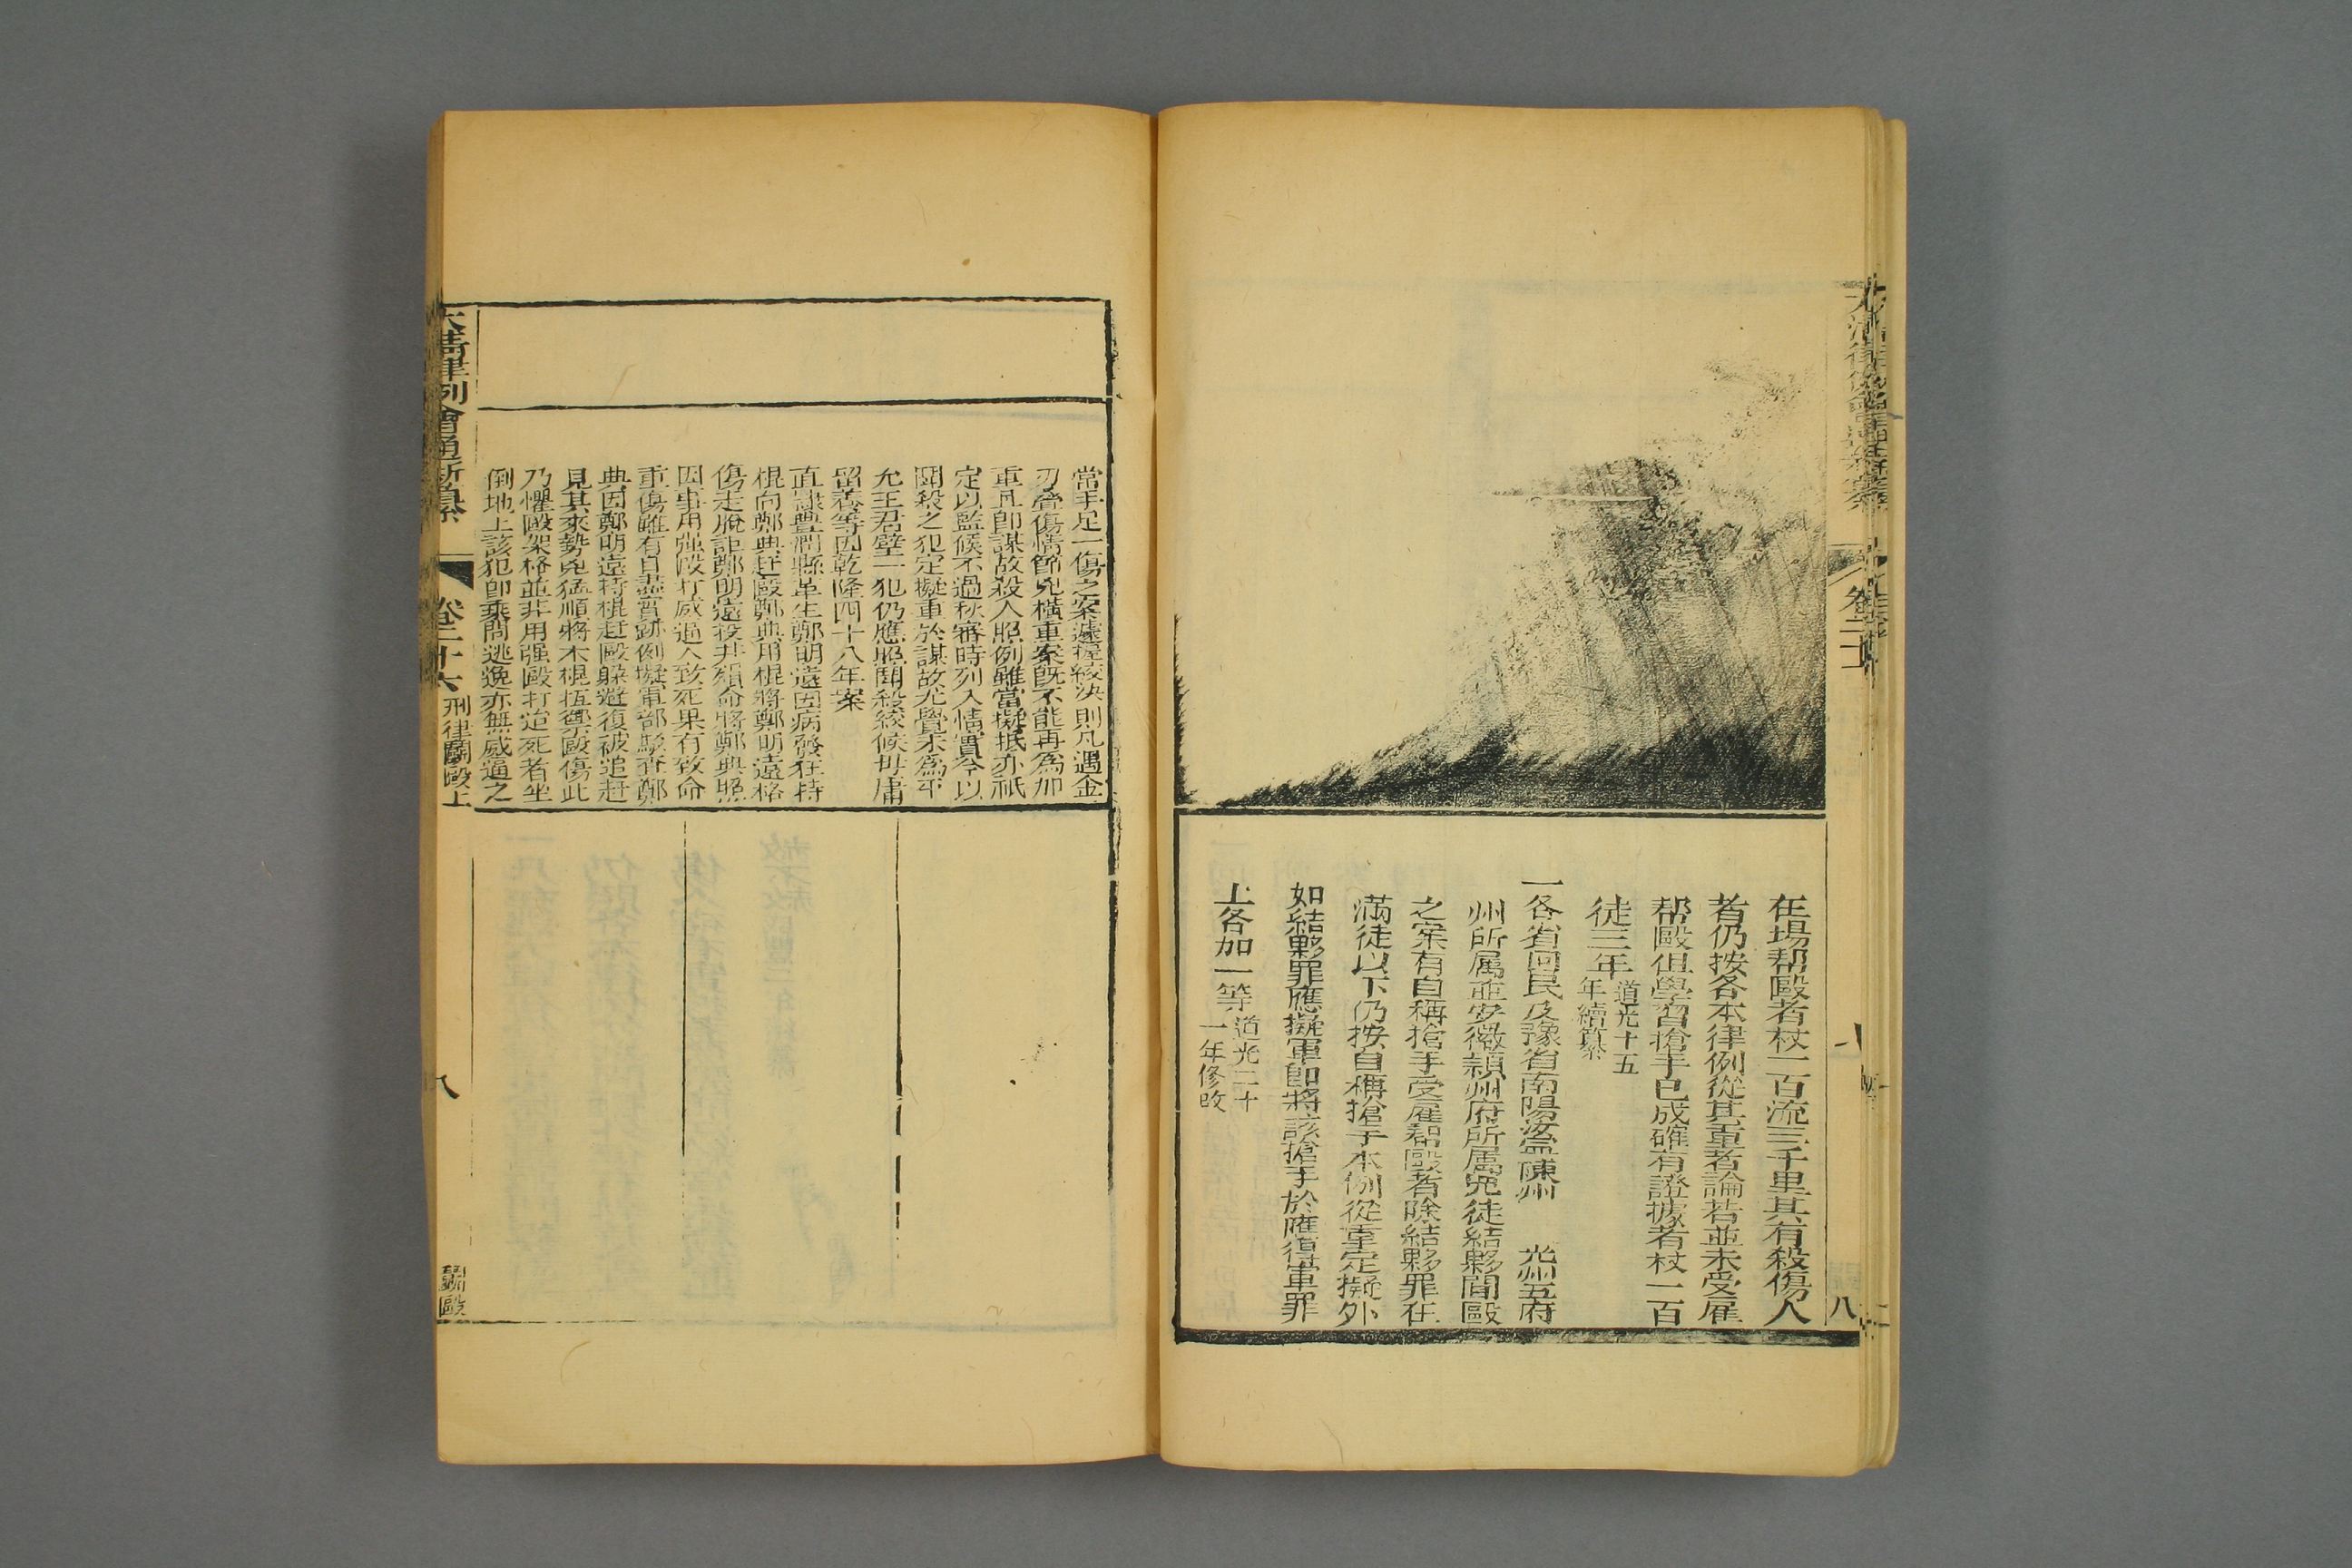 在場帮毆者杖一百流三千里其有殺傷人
者仍按各本律例從其重者論若並未受雇
帮毆但學習搶手已成確有證據者杖一百
徒三年
道光十五
年續纂
一各省回民及豫省南陽汝寧陳州光州五府
州所属並安徽潁州府所属兇徒結夥鬥毆
之案有自稱搶手受雇帮毆者除結夥罪在
滿徒以下仍按自稱搶手本例從重定擬外
如結夥罪應擬軍卽將該搶手於應得軍罪
上各加一等
道光二十
一年修改
八
常手足一傷之案遽擬絞決則凡遇金
刃疊傷情節兇橫重案既不能再為加
重且卽謀故殺人照例雖當擬抵亦祇
定以監候不過秋審時列入情實今以
鬥殺之犯定擬重於謀故尤覺未為平
允王君壁一犯仍應照鬥殺絞候毋庸
留養等因乾隆四十八年案
直隸豐潤縣革生鄭明遠因病發狂持
棍向鄭典赶毆鄭典用棍將鄭明遠格
傷走脫詎鄭明遠投井殞命將鄭典照
因事用强毆打威逼人致死果有致命
重傷雖有自盡實跡例擬軍部駁查鄭
典因鄭明遠持棍赶毆躲避復被追赶
見其來勢兇猛順將木棍抵禦毆傷此
乃懼毆架格並非用强毆打迨死者坐
倒地上該犯卽乘間逃逸亦無威逼之
大清律例會通新纂
卷二十六
刑律鬬毆上
八
鬬毆